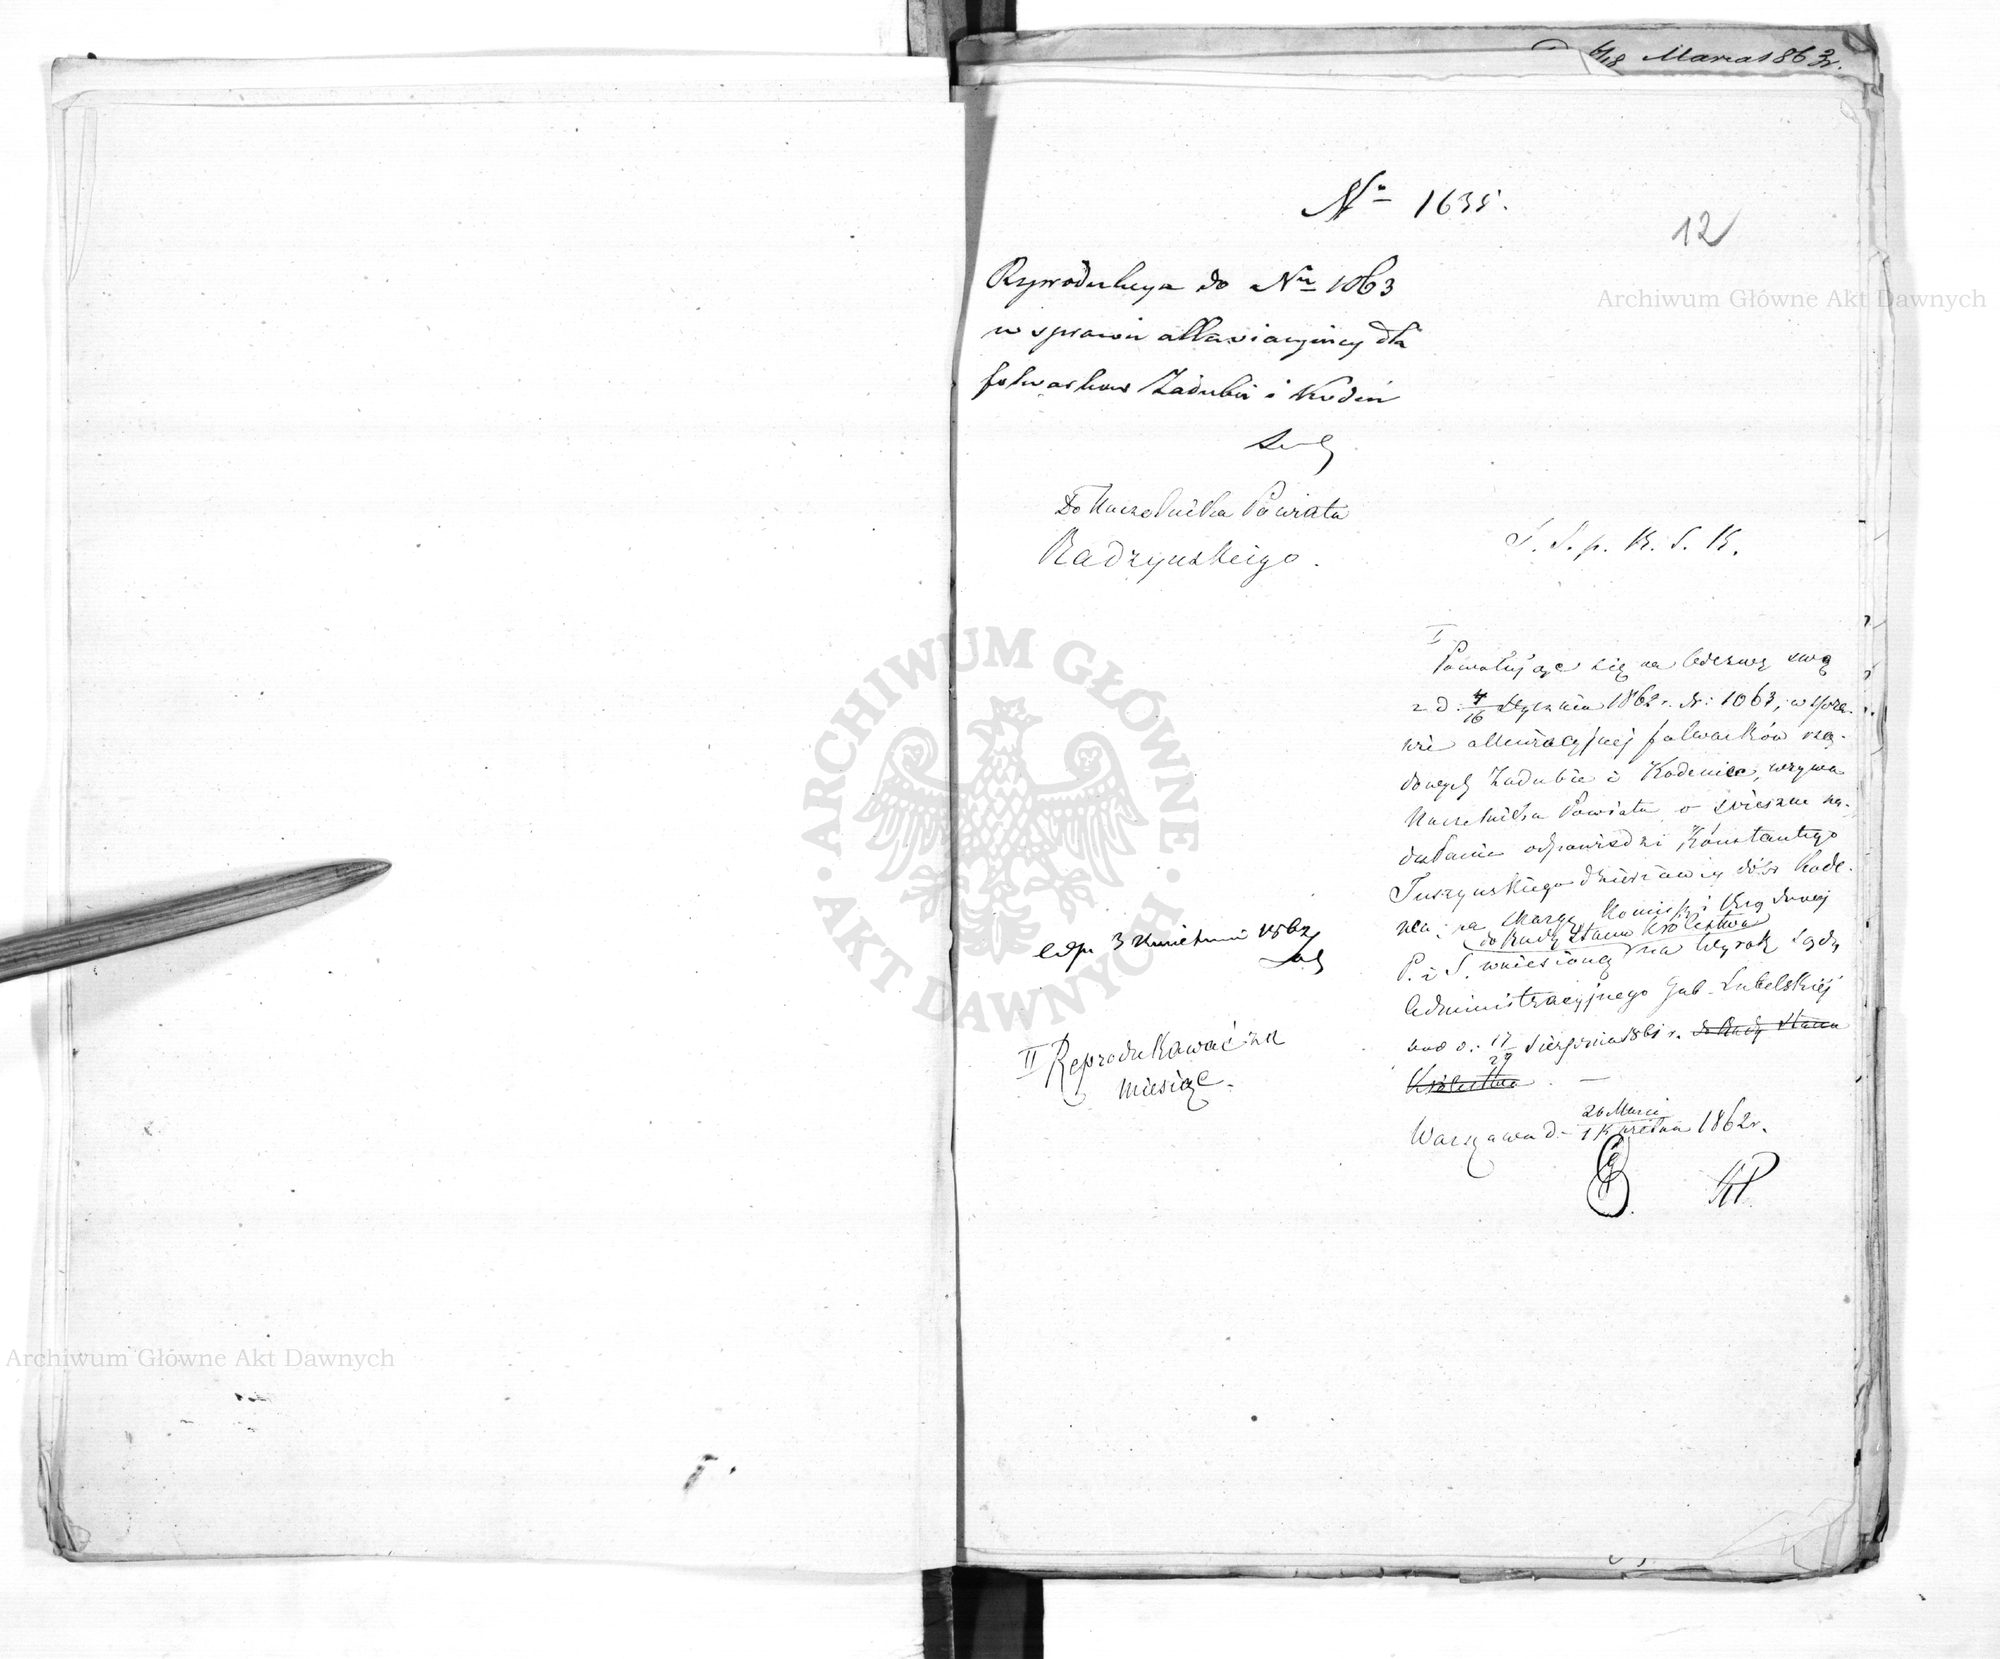 6/18 Marca 1863r.
Nº 1635.
12
Archiwum Główne Akt Dawnych
Reprodukcya do Nru 1063
w sprawie allewiacyjnej dla
folwarków Zadubie i Kodeń
Do Naczelnika Powiatu
Radzyńskiego.
S. S. p. K. S. K.
I
Powołując się na Odezwę swą
z d. 4/16 Stycznia 1862 r. Nr: 1063, w spra-
wie allewiacyjnej folwarków rzą-
dowych Zadubie i Kodeniec, wzywa
Naczelnika Powiatu o śpieszne na-
desłanie odpowiedzi Konstantego
Tuszyńskiego dzierżawcy dóbr Kode-
na skargę Komisyi Rządowej
do Rady Stanu Królestwa
P. i S. wniesioną na Wyrok Sądu
Administracyjnego Gub. Lubelskiej
d. 17/29 Sierpnia 1861 r. do Rady Stanu
Królestwa. —
Warszawa d. 20 Marca/1 Kwietnia 1862r.
exp. 3 Kwietnia 1862
II Reprodukować za
miesiąc.
ARCHIWUM GŁÓWNE AKT DAWNYCH
Archiwum Główne Akt Dawnych